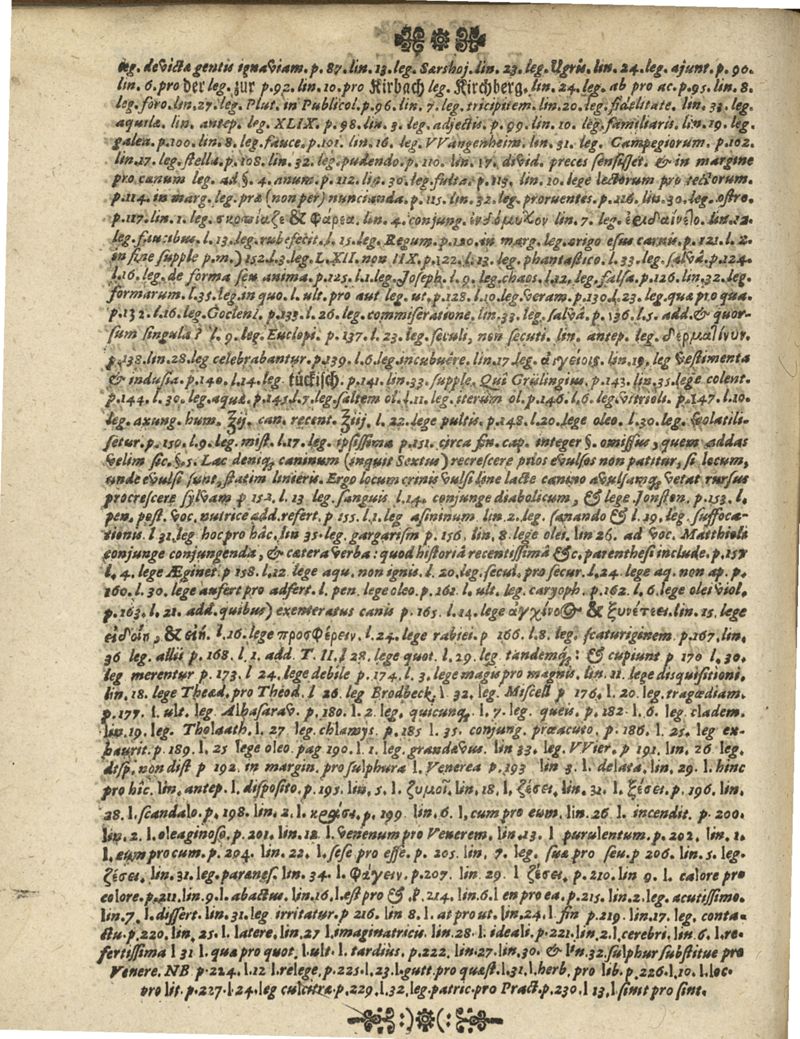 leg. devictæ gentis ignaviam. p. 87. lin. 13. leg. Sarshoj. lin. 23. leg. Ugris. lin. 24. leg. ajunt. p. 90.
lin. 6. pro der leg. zur p. 92. lin. 10. pro Kirbach leg. Kirchberg. lin. 24. leg. ab pro ac. p. 95. lin. 8.
leg. foro. lin. 27. leg. Plut. in Publicol. p. 96. lin. 7. leg. tricipitem. lin. 20. leg. fidelitate. lin. 33. leg.
aquilæ. lin. antep. leg. XLIX. p. 98. lin. 3. leg. adjectis. p. 99. lin. 10. leg. familiaris. lin. 19. leg.
galea. p. 100. lin. 8. leg. fauce. p. 101. lin. 16. leg. VVangenheim. lin. 31. leg. Campegiorum. p. 102.
lin. 17. leg. stella. p. 108. lin. 32. leg. pudendo. p. 110. lin. 17. divid. preces sensisset. & in margine
pro canum leg. ad §. 4. anum. p. 112. lin. 30. leg. fulta. p. 113. lin. 10. lege lectorum pro rectorum.
p. 114. in marg. leg. præ (non per) nuncianda. p. 115. lin. 32. leg. proruentes. p. 116. lin. 30. leg. ostro.
p. 117. lin. 1. leg. σκωπίαζε & Φάρεα. lin. 4. conjung. ἐνδόμυχον lin. 7. leg. ἐριδαίνελο. lin. 12.
leg. faucibus. l. 13. leg. rubefecit. l. 15. leg. Regum. p. 120. in marg. leg. origo esus carnis. p. 121. l. 2.
in fine supple p. m.) 152. l. 3. leg. LXII. non IIX. p. 122. l. 13. leg. phantastico. l. 33. leg. salvâ. p. 124.
l. 16. leg. de forma seu anima. p. 125. l. 1. leg. Joseph. l. 9. leg. chaos. l. 12. leg. falsa. p. 126. lin. 32. leg.
formarum. l. 35. leg. in quo. l. ult. pro aut leg. ut. p. 128. l. 10. leg. veram. p. 130. l. 23. leg. quæ pro qua.
p. 132. l. 16. leg. Goclenî. p. 133. l. 26. leg. commiseratione. lin. 33. leg. salvâ. p. 136. l. 5. add. & quor-
sum singula? l. 9. leg. Euclopi. p. 137. l. 23. leg. seculi, non secuti. lin. antep. leg. δερματίνων.
p. 138. lin. 28. leg celebrabantur. p. 139. l. 6. leg. incubuêre. lin. 17. leg. ἀγγείοις. lin. 19. leg vestimenta
& indusia. p. 140. l. 14. leg. tückisch. p. 141. lin. 33. supple. Qui Grülingius. p. 143. lin. 35. lege colent.
p. 144. l. 30. leg. aquæ. p. 145. l. 7. leg. saltem ol. l. 11. leg. iterum ol. p. 146. l. 6. leg. vitrioli. p. 147. l. 10.
leg. axung. hum. ʒij. can. recent. ʒiij. l. 22. lege pultis. p. 148. l. 20. lege oleo. l. 30. leg. volatili-
setur. p. 150. l. 9. leg. mist. l. 17. leg. ipsissima p. 151. circa fin. cap. integer §. omissus, quem addas
velim sic. §. 5. Lac deniq́; caninum (inquit Sextus) recrescere pilos evulsos non patitur, si locum,
unde evulsi sunt, statim linieris. Ergo locum crinis vulsi sine lacte canino avulsamq́; vetat rursus
procrescere sylvam p 152. l. 13 leg. sanguis l. 14. conjunge diabolicum, & lege Jonston. p. 153. l.
pen. post. voc. nutrice add. refert. p 155. l. 1. leg asininum lin. 2. leg. sanando & l. 19. leg. suffoca-
tionis. l 31. leg hoc pro hâc. lin 35. leg. gargarism p. 156. lin. 8. lege olei. lin 26. ad voc. Matthioli
conjunge conjungenda, & cætera verba: quod historiâ recentissimâ &c. parenthesi include. p. 157
l. 4. lege Æginet p 158. l. 12 lege aqu. non ignis. l. 20. leg. secul. pro secur. l. 24. lege aq. non ap. p.
160. l. 30. lege aufert pro adfert. l. pen. lege oleo. p. 161. l. ult. leg. caryoph. p. 162. l. 6. lege olei viol.
p. 163. l. 21. add. quibus) exenteratus canis p. 165. l. 14. lege ἀγχίνο & ξυνέττει. lin. 15. lege
εἰδοίη, & εἴη. l. 16. lege προσΦέρειν. l. 24. lege rabiei. p 166. l. 8. leg. scaturiginem. p. 167. lin.
36 leg. allii p. 168. l. 1. add. T. II. l 28. lege quot. l. 29. leg. tandemq́;: & cupiunt p 170 l. 30.
leg merentur p. 173. l 24. lege debile p. 174. l. 3. lege magis pro magnis. lin. 11. lege disquisitioni.
lin. 18. lege Thead. pro Théod. l 26. leg Brodbeck. l 32. leg. Miscell p 176. l. 20. leg. tragœdiam.
p. 177. l. ult. leg. Alhasarav. p. 180. l. 2. leg. quicunq́; l. 7. leg. queis. p. 182. l. 6. leg. cladem.
lin. 19. leg. Tholaath. l. 27 leg. chlamys. p. 185 l. 35. conjung. præacuto. p. 186. l. 25. leg ex-
haurit. p 189. l. 25 lege oleo. pag 190. l. 1. leg. grandævus. lin 33. leg. VVier. p 191. lin. 26 leg.
disp. non dist p 192. in margin. pro sulphura l. Venerea p. 193 lin 3. l. delata. lin. 29. l. hinc
pro hîc. lin. antep. l. disposito. p. 195. lin. 5. l. ζυμοῖ. lin. 18. l. ζέσει. lin. 31. l. ζέσει. p. 196. lin.
28. l. scandalo. p. 198. lin. 2. l. κράσις. p. 199 lin. 6. l. cum pro eum. lin. 26 l. incendit. p. 200.
lin. 2. l. oleaginoso. p. 201. lin. 12. l. venenum pro Venerem. lin. 13. l purulentum. p. 202. lin. 1.
l. eum pro cum. p. 204. lin. 22. l. sese pro esse. p. 205. lin. 7. leg. sua pro seu. p 206. lin. 5. leg.
ζέσει. lin. 31. leg. parænes. lin. 34. l. Φάγειν. p. 207. lin. 29. l ζέσει. p. 210. lin 9. l. calore pro
colore. p. 211. lin. 9. l. abactus. lin. 16. l. est pro &. p. 214. lin. 6. l en pro ea. p. 215. lin. 2. leg. acutissimo.
lin. 7. l. dissert. lin. 31. leg irritatur. p 216. lin 8. l. at pro ut. lin. 24. l fin p. 219. lin. 17. leg. conta-
ctu. p. 220. lin. 25. l. latere. lin. 27 l. imaginatricis. lin. 28. l. ideali. p. 221. lin. 2. l. cerebri. lin. 6. l. re-
fertissima l 31 l. qua pro quot. l. ult. l. tardius. p. 222. lin. 27. lin. 30. & lin. 32. sulphur substitue pro
Venere. NB p. 224. l. 12 l. relege. p. 225. l. 23. l. gutt. pro quæst. l. 31. l. herb. pro lib. p. 226. l. 10. l. loc.
pro lit. p. 227. l. 24. leg culcitræ. p. 229. l. 32. leg. patric. pro Pract. p. 230. l 13. l. sinit pro sint.